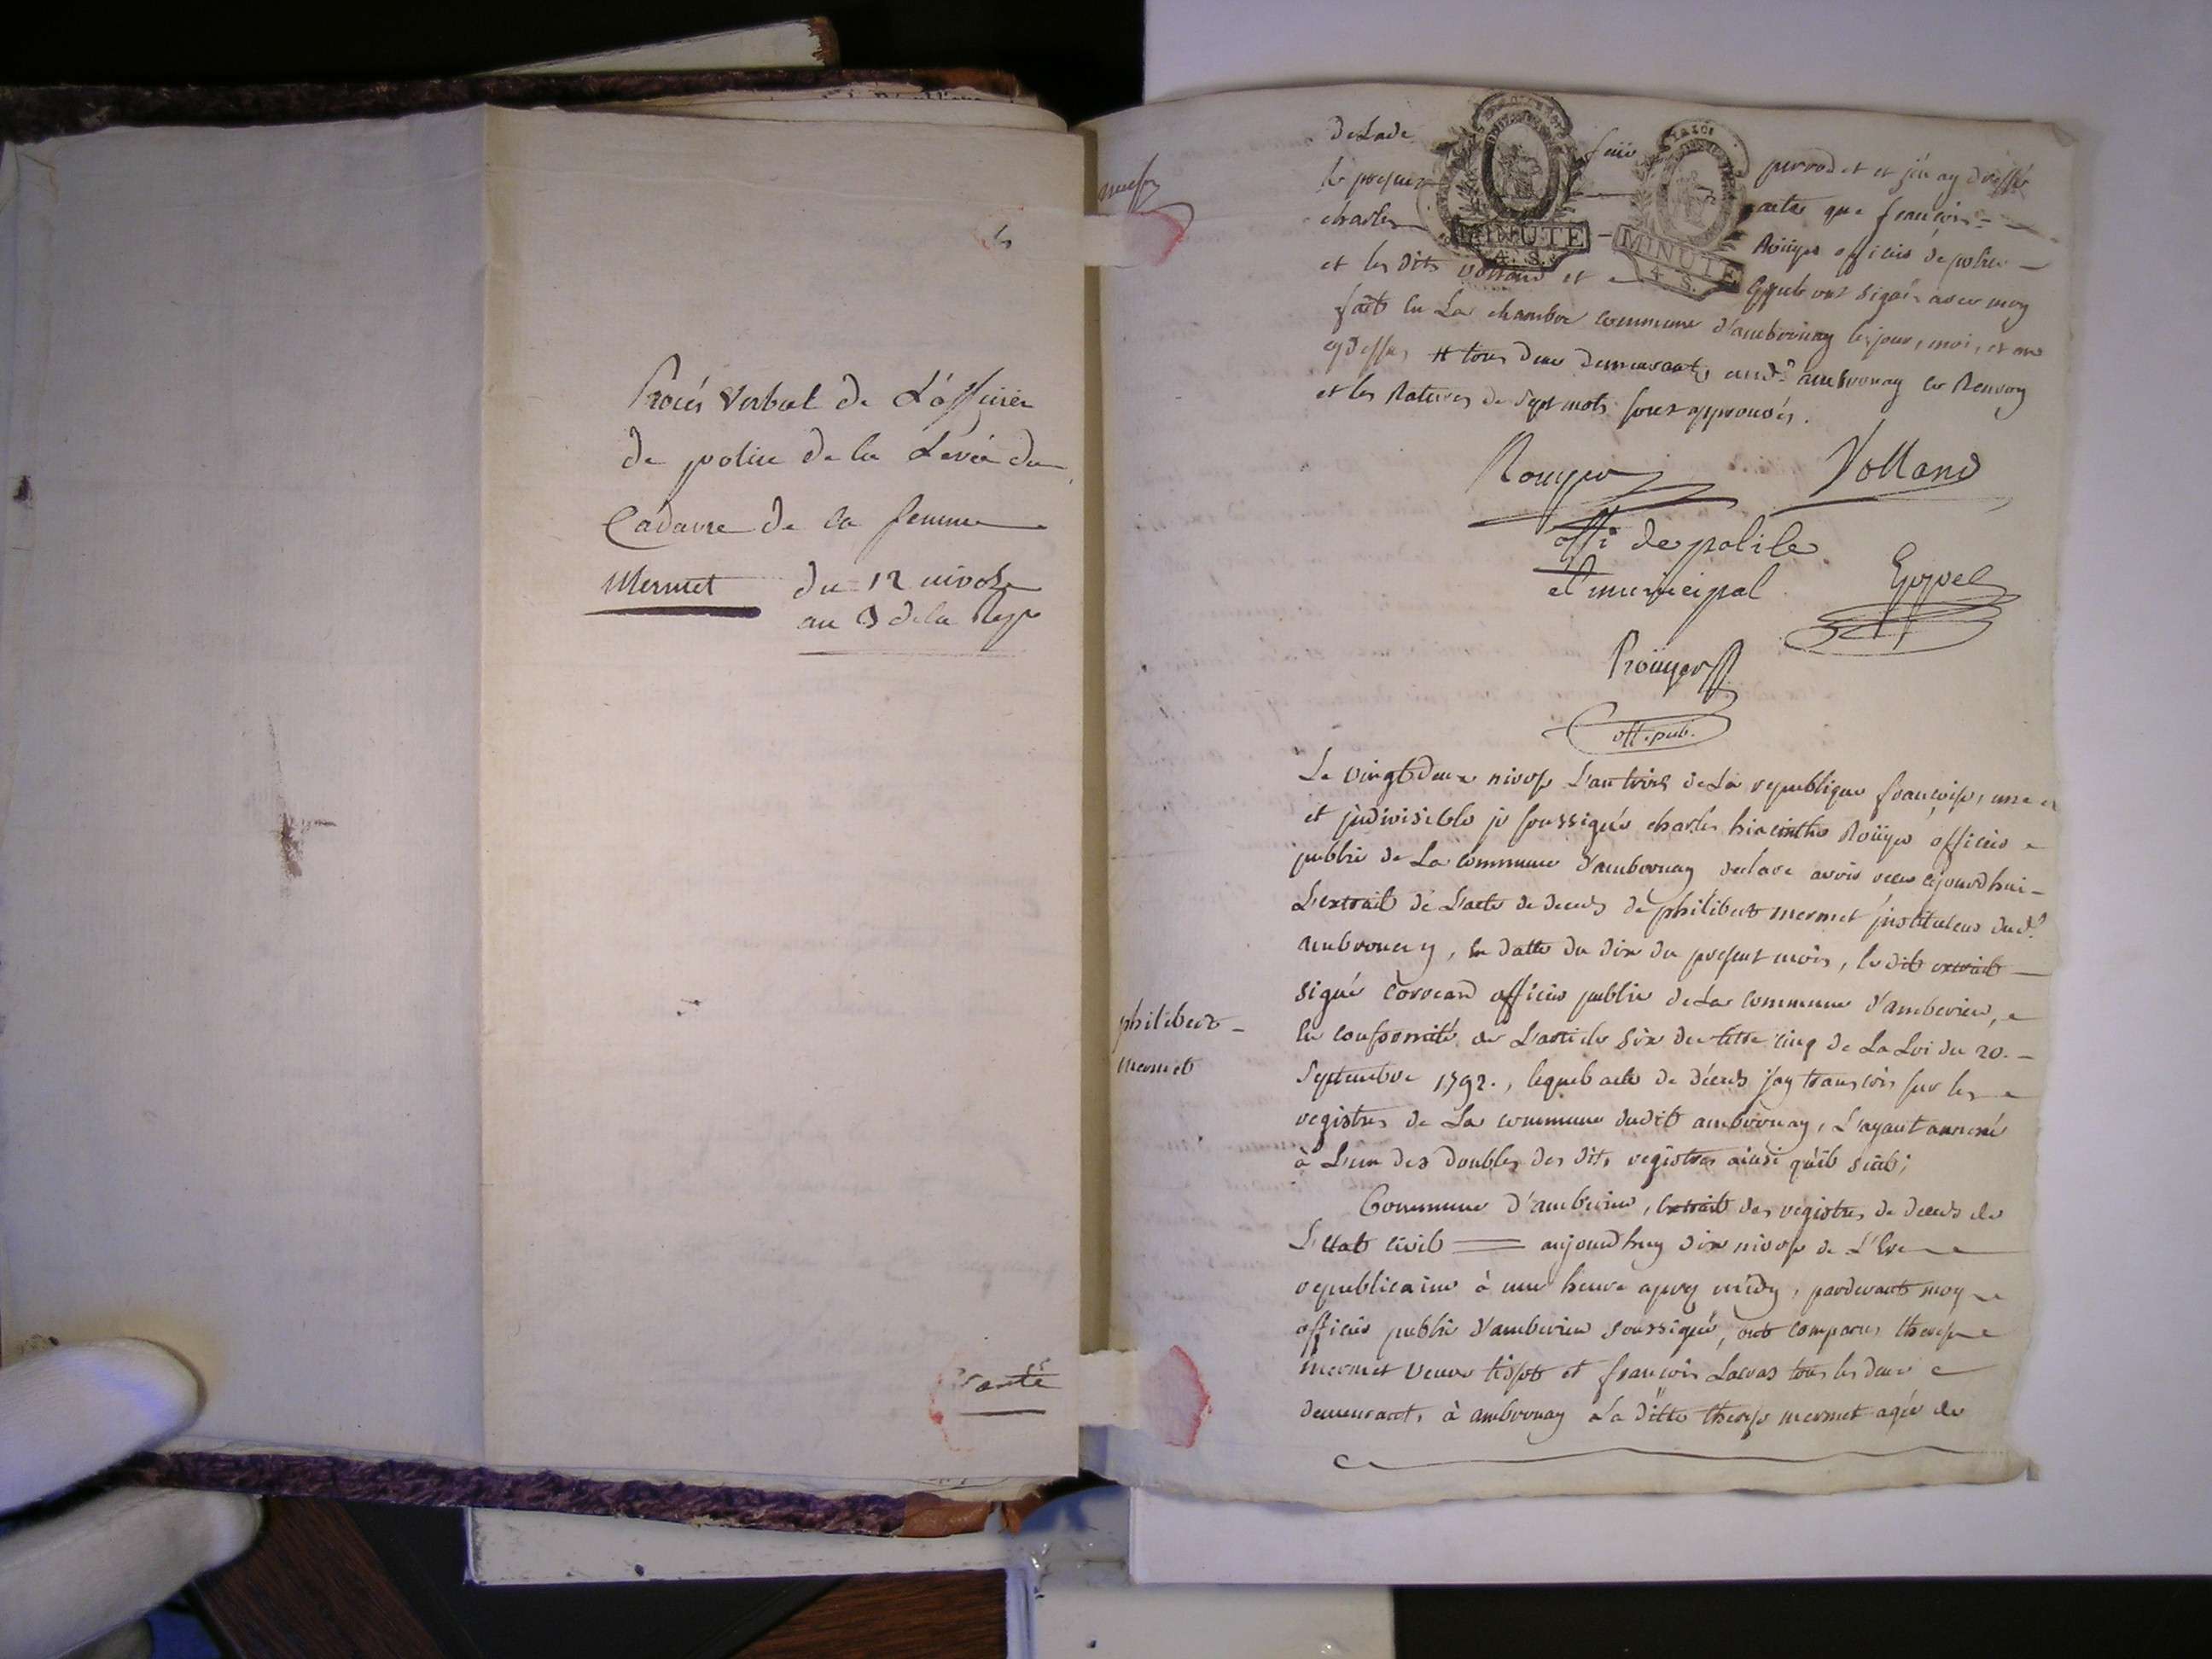 Procés Verbal de L'officier
de police de la Levée du
Cadavre de la femme
Mermet du 12 nivose
an 3 de la Rep
De Lade
le present perrodet et j'en ay dressé
charles acte que francois
MINUTE
4. S.
MINUTE
4. S.
Roüyer officier de police
et les dits volland et Goppel ont signé avec moy
fait en La chambre commune d'ambronay les jour, mois, et an
cy dessus # tous deux demeurants aud.t ambronay le Renvoy
et les Ratures de sept mots sont approuvés.
Rouyer Volland
offi de polile
et municipal Goppel
Roüyer
off. pub.
Le vingt deux nivose L'an trois de La republique françoise, une
et jndivisible je soussigné charles hiacinthe Roüyer officier
public de La commune d'ambronay declare avoir recu cejourdhui
L'extrait de L'acte de deces de philibert mermet jnstituteur dud.t
ambronay, en datte du dix du present mois, le dit extrait
signé officier public de La commune d'amberieu,
en conformité de L'article six du titre cinq de La Loi du 20.
philibert
mermet
Septembre 1792., lequel acte de décès j'ay transcris sur les
registres de La commune dudit ambronay, L'ayant annexé
à L'un des doubles des dits registres ainsi qu'il suit;
Commune d'amberieu, extrait des registres de deces de
L'etat civil aujourdhuy dix nivose de L'Ere
republicaine à une heure apres midy, pardevant moy
officier public d'amberieu soussigné, ont comparus therese
mermet veuve tissot et francois Lacras tous les deux
demeurants à ambronay La ditte therese mermet agée de